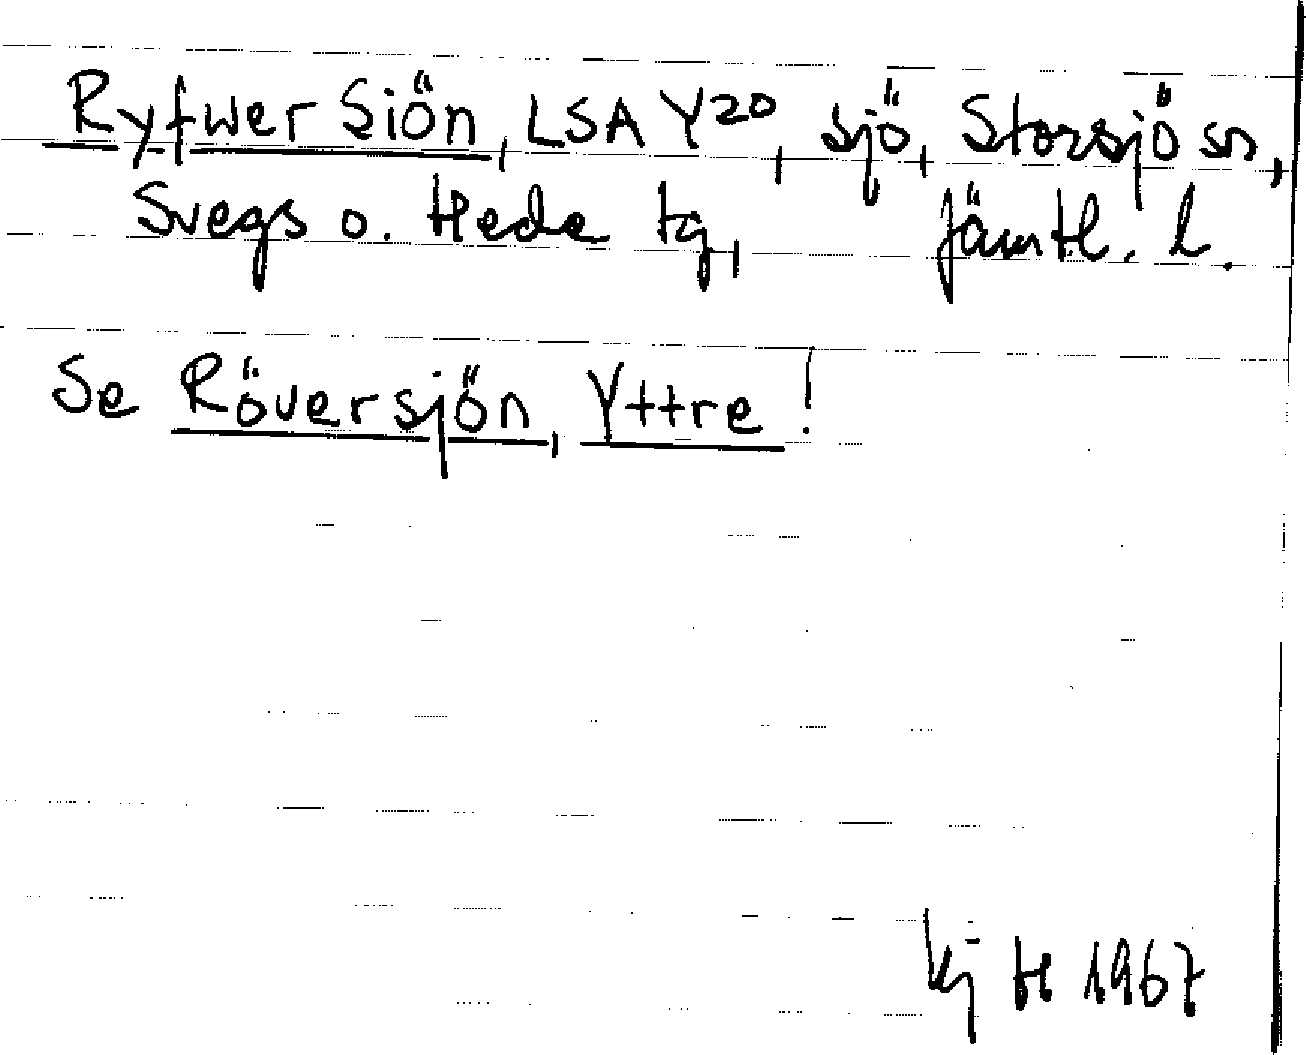 Ryfwer Siön, LSA Y20, sjö, Storsjö sn,
Svegs o. Hede tg, Jämtl. l.
Se Röversjön, Yttre!
Kj H 1967